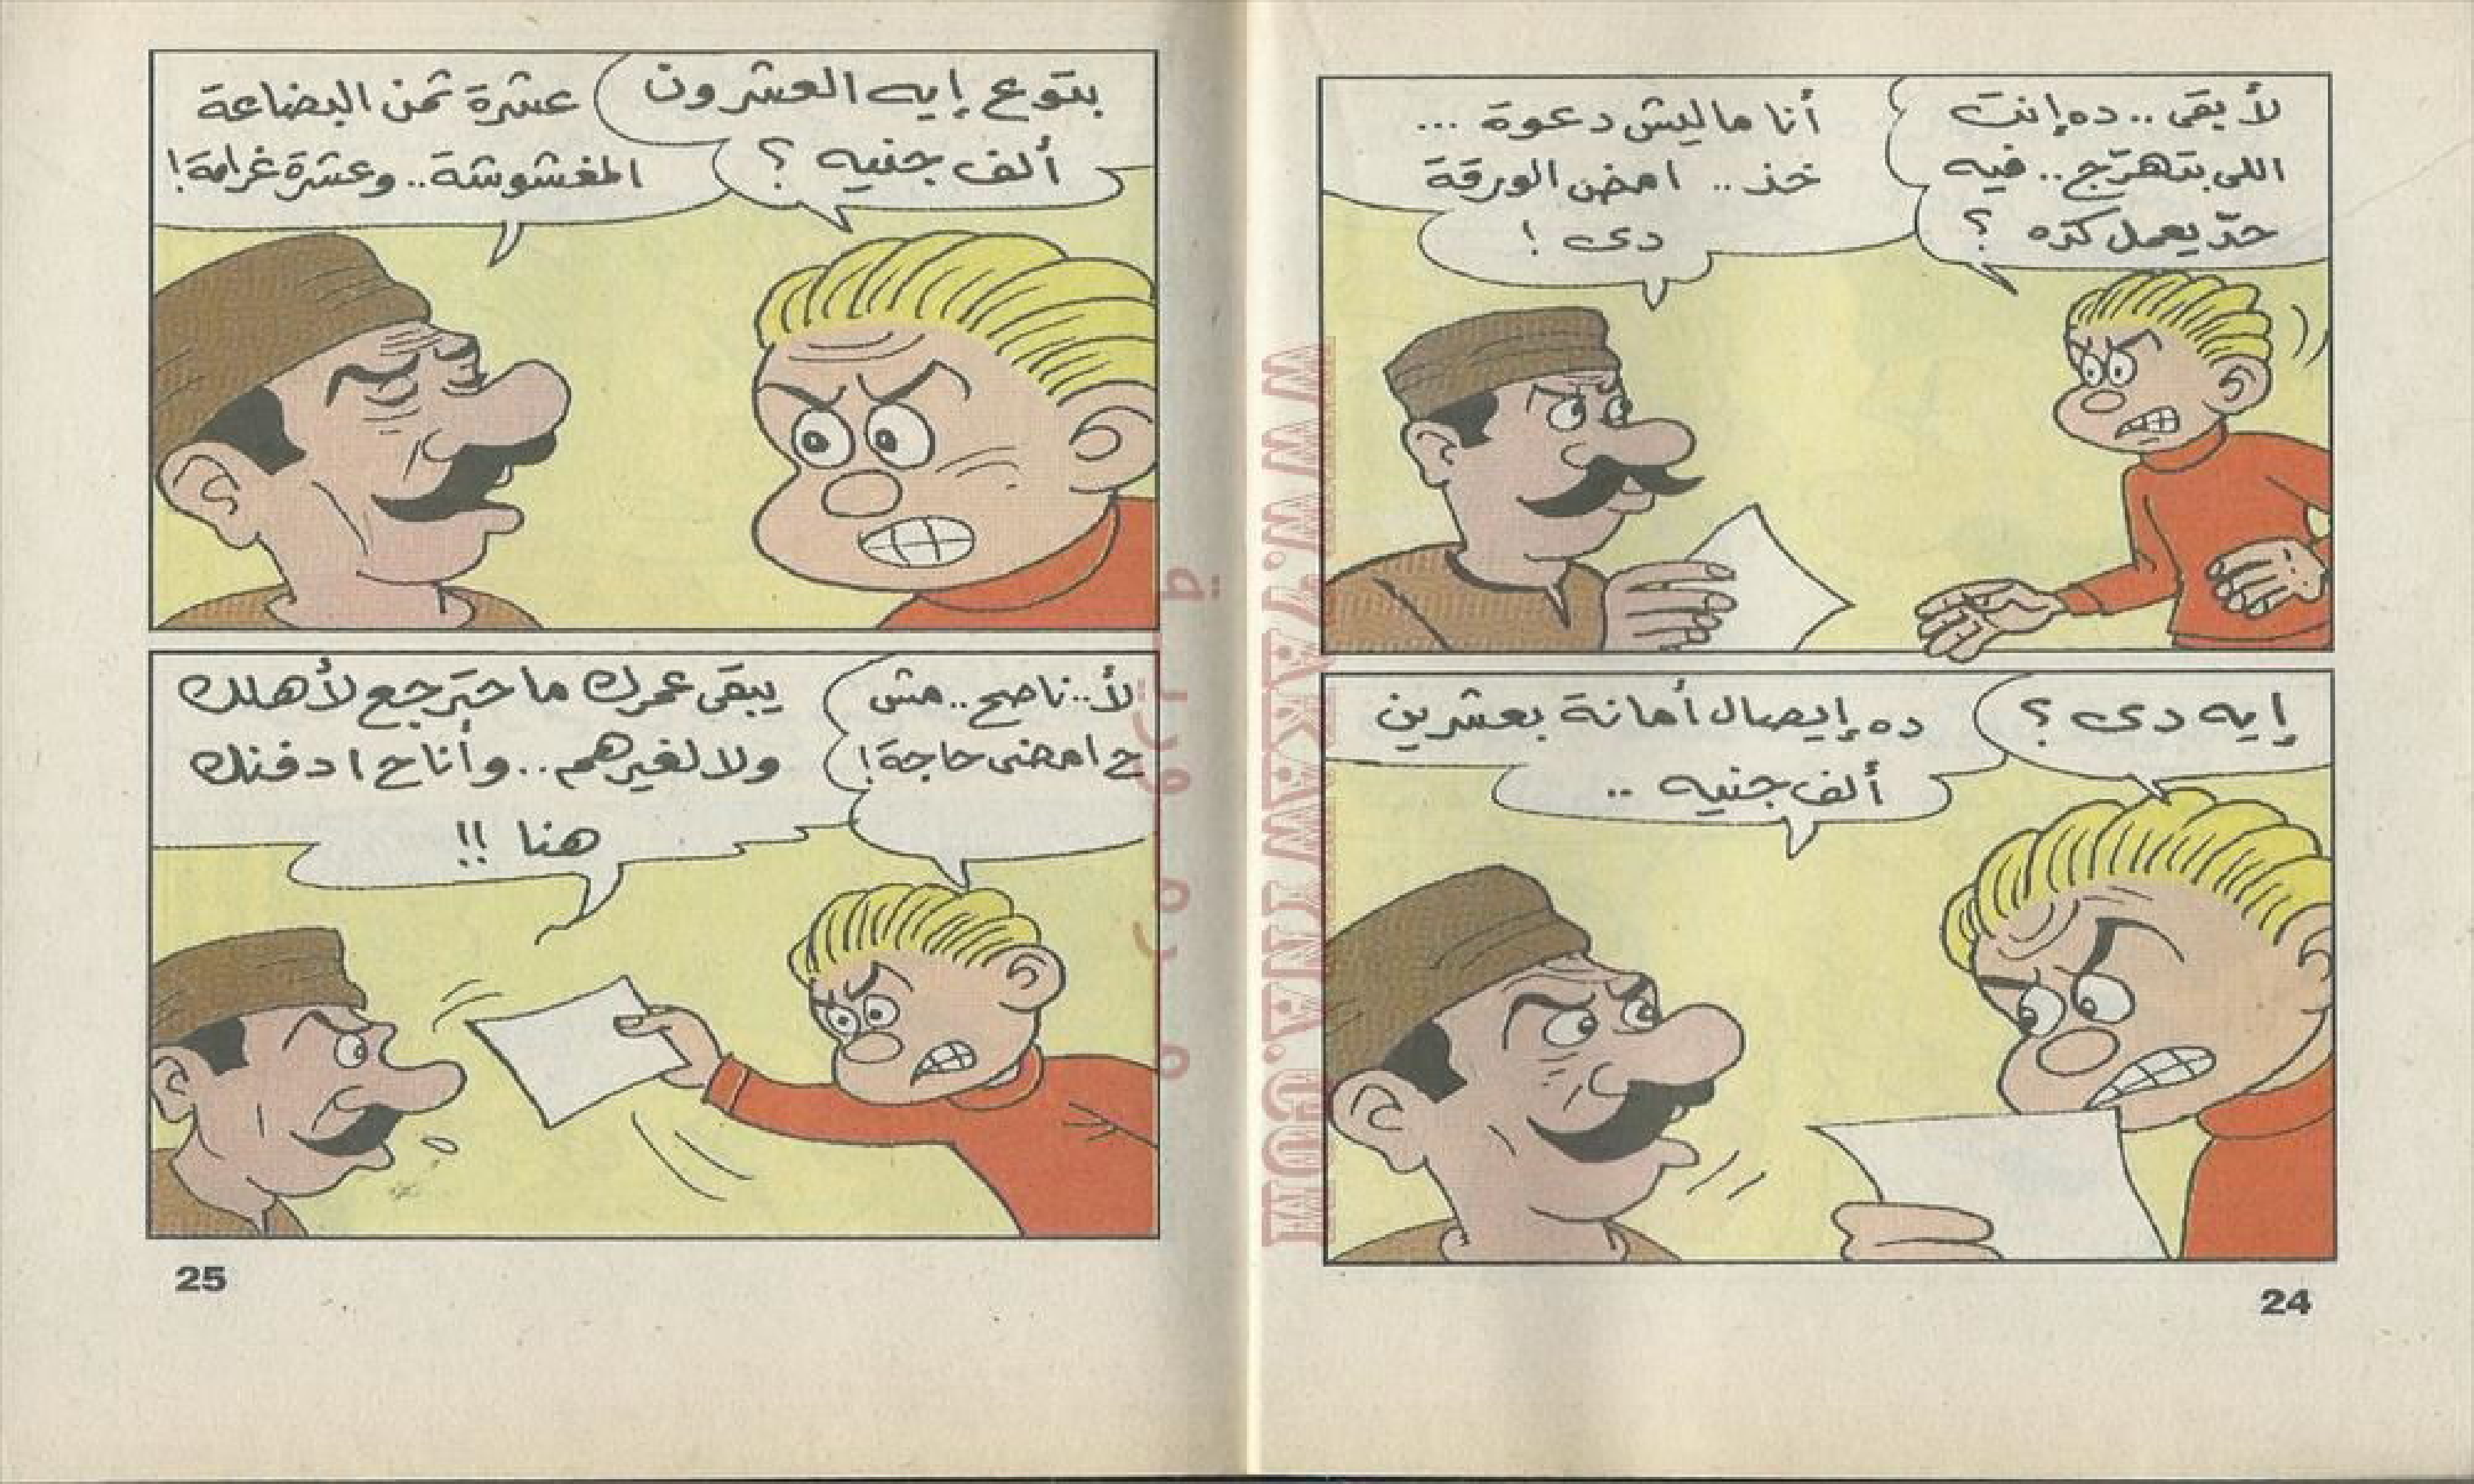 لأ بقى.. ده إنت
اللى بتهرّج.. فيه
حدّ يعمل كده ؟
أنا ماليش دعوة ...
خذ.. امضى الورقة
دى !
إيه دى ؟
ده إيصال أمانة بعشرين
ألف جنيه ..
24
بتوع إيه العشرون
ألف جنيه ؟
عشرة ثمن البضاعة
المغشوشة.. وعشرة غرامة!
لأ.. ناصح.. مش
ح امضى حاجة!
يبقى عمرك ما حترجع لأهلك
ولا لغيرهم.. وأنا ح ادفنك
هنا !!
25